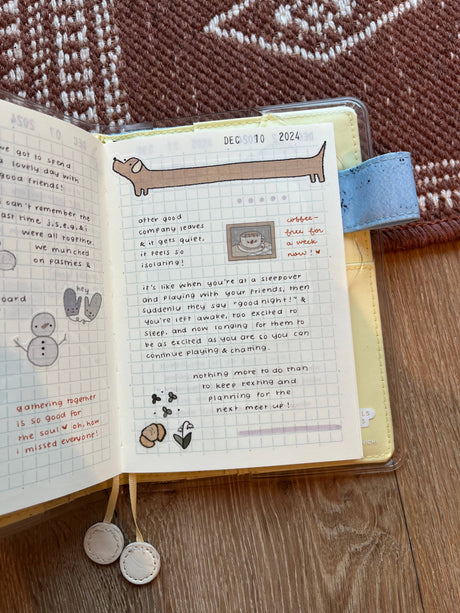 DEC 07 2024
we got to spend
a lovely day with
good friends!
can't remember the
last time j,s,e,g,& i
were all together.
we munched
on pastries &
board
hey
gathering together
is so good for
the soul ♥ oh, how
i missed everyone!
DEC 10 2024
after good
company leaves
& it gets quiet,
it feels so
isolating!
coffee-
free for
a week
now! ♥
it's like when you're at a sleepover
and playing with your friends, then
suddenly they say "good night!" &
you're left awake, too excited to
sleep, and now longing for them to
be as excited as you are so you can
continue playing & chatting.
nothing more to do than
to keep texting and
planning for the
next meet up!